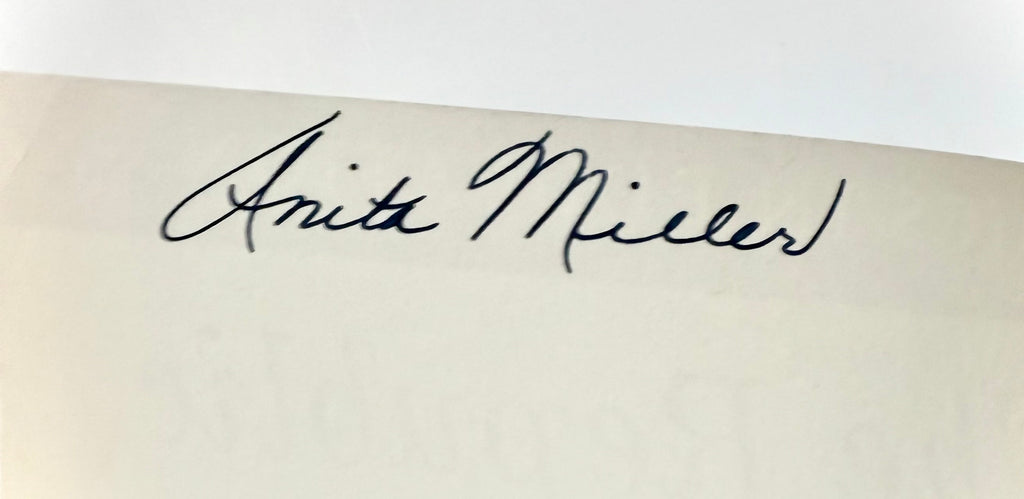 Anita Miller